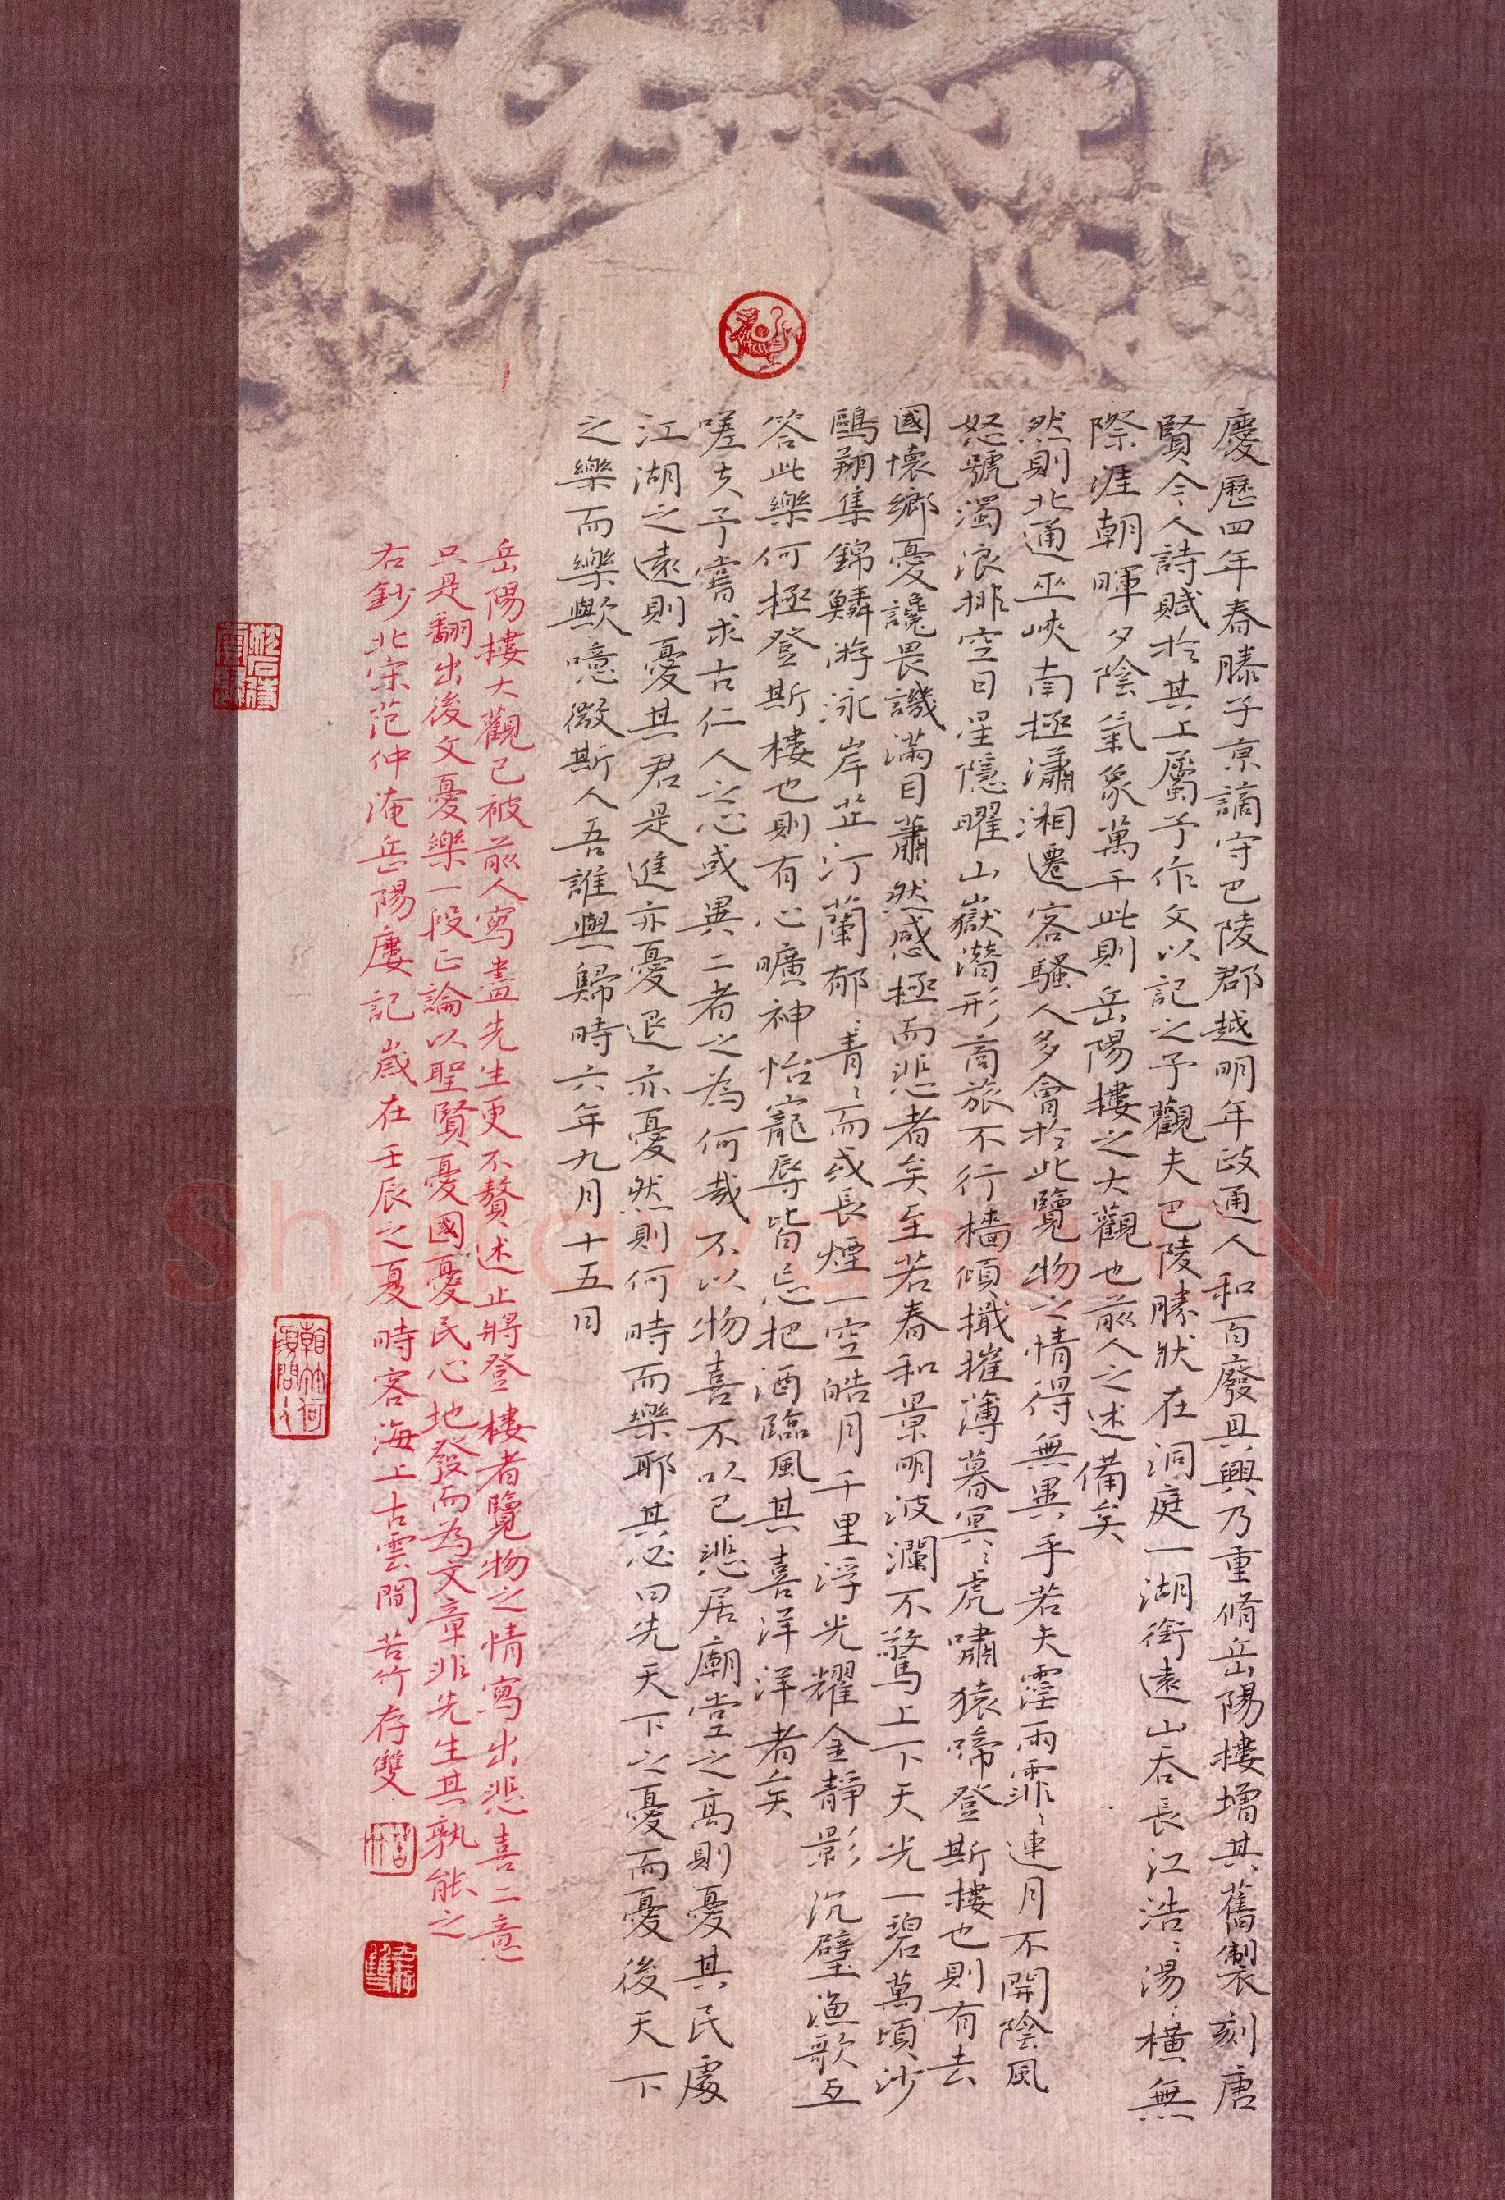 慶歷四年春滕子京謫守巴陵郡越明年政通人和百廢具興乃重脩岳陽樓增其舊製刻唐
賢今人詩賦於其上屬予作文以記之予觀夫巴陵勝狀在洞庭一湖銜遠山吞長江浩〻湯〻橫無
際涯朝暉夕陰氣象萬千此則岳陽樓之大觀也前人之述備矣
然則北通巫峽南極瀟湘遷客騷人多會於此覽物之情得無異乎若夫霪雨霏〻連月不開陰風
怒號濁浪排空日星隱曜山嶽潛形商旅不行檣傾檝摧薄暮冥〻虎嘯猿啼登斯樓也則有去
國懷鄉憂讒畏譏滿目蕭然感極而悲者矣至若春和景明波瀾不驚上下天光一碧萬頃沙
鷗翔集錦鱗游泳岸芷汀蘭郁〻青〻而或長煙一空皓月千里浮光耀金靜影沉璧漁歌互
答此樂何極登斯樓也則有心曠神怡寵辱皆忘把酒臨風其喜洋洋者矣
嗟夫予嘗求古仁人之心或異二者之為何哉不以物喜不以己悲居廟堂之高則憂其民處
江湖之遠則憂其君是進亦憂退亦憂然則何時而樂耶其必曰先天下之憂而憂後天下
之樂而樂歟噫微斯人吾誰與歸時六年九月十五日
岳陽樓大觀已被前人寫盡先生更不贅述止將登樓者覽物之情寫出悲喜二意
只是翻出後文憂樂一段正論以聖賢憂國憂民心地發而為文章非先生其孰能之
右鈔北宋范仲淹岳陽廔記歲在壬辰之夏時客海上古雲間苦竹存雙